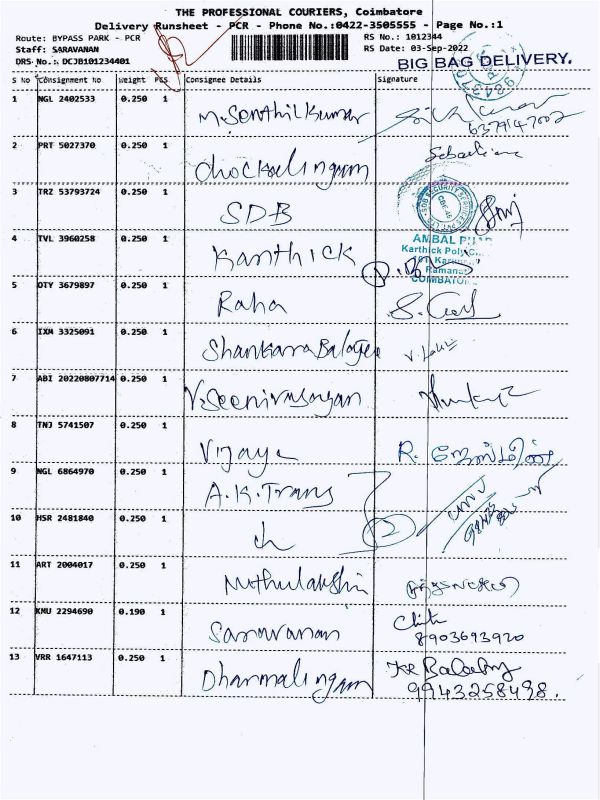 THE PROFESSIONAL COURIERS, Coimbatore
Delivery Runsheet - PCR - Phone No.:0422-3505555 - Page No.:1
Route: BYPASS PARK - PCR RS No.: 1012344
Staff: SARAVANAN RS Date: 03-Sep-2022
DRS No.: DCJB101234401 BIG BAG DELIVERY.
S No Consignment No Weight PCS Consignee Details Signature
1 NGL 2402533 0.250 1 M. Senthil Kumar
6379147002
2 PRT 5027370 0.250 1 Chockalingam
3 TRZ 53793724 0.250 1 SDB
4 TVL 3960258 0.250 1 Karthick
AMBAL
Karthick
Ramanat
COIMBATOR
5 OTY 3679897 0.250 1 Raha
6 IXM 3325091 0.250 1 Shankara
7 ABI 20220807714 0.250 1 V. Seenivasagan
8 TNJ 5741507 0.250 1 Vijaya R.
9 NGL 6864970 0.250 1 A.K. Trans
10 HSR 2481840 0.250 1 ch
11 ART 2004017 0.250 1 Muthulakshmi
12 KMU 2294690 0.190 1 Saravanan
8903693920
13 VRR 1647113 0.250 1 Dharmalingam
9943258498.